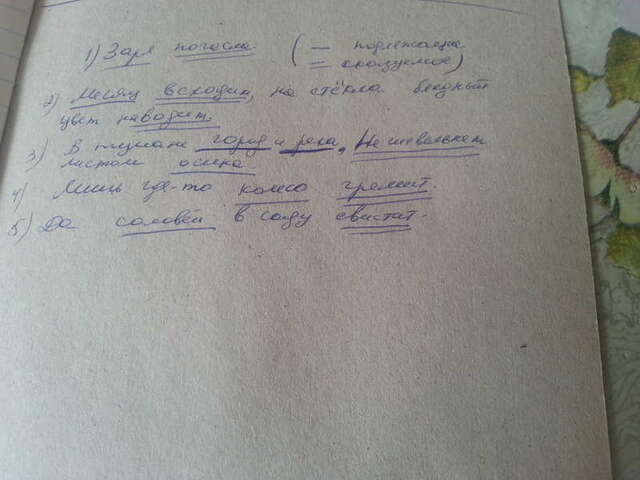 1) Заря погасла ( — подлежащее
= сказуемое)
2) Месяц всходит, на стёкла бледный
цвет наводит.
3) В тумане город и река. Не шевельнет
листом осина
4) Лишь где-то колесо гремит.
5) Да соловей в саду свистит.